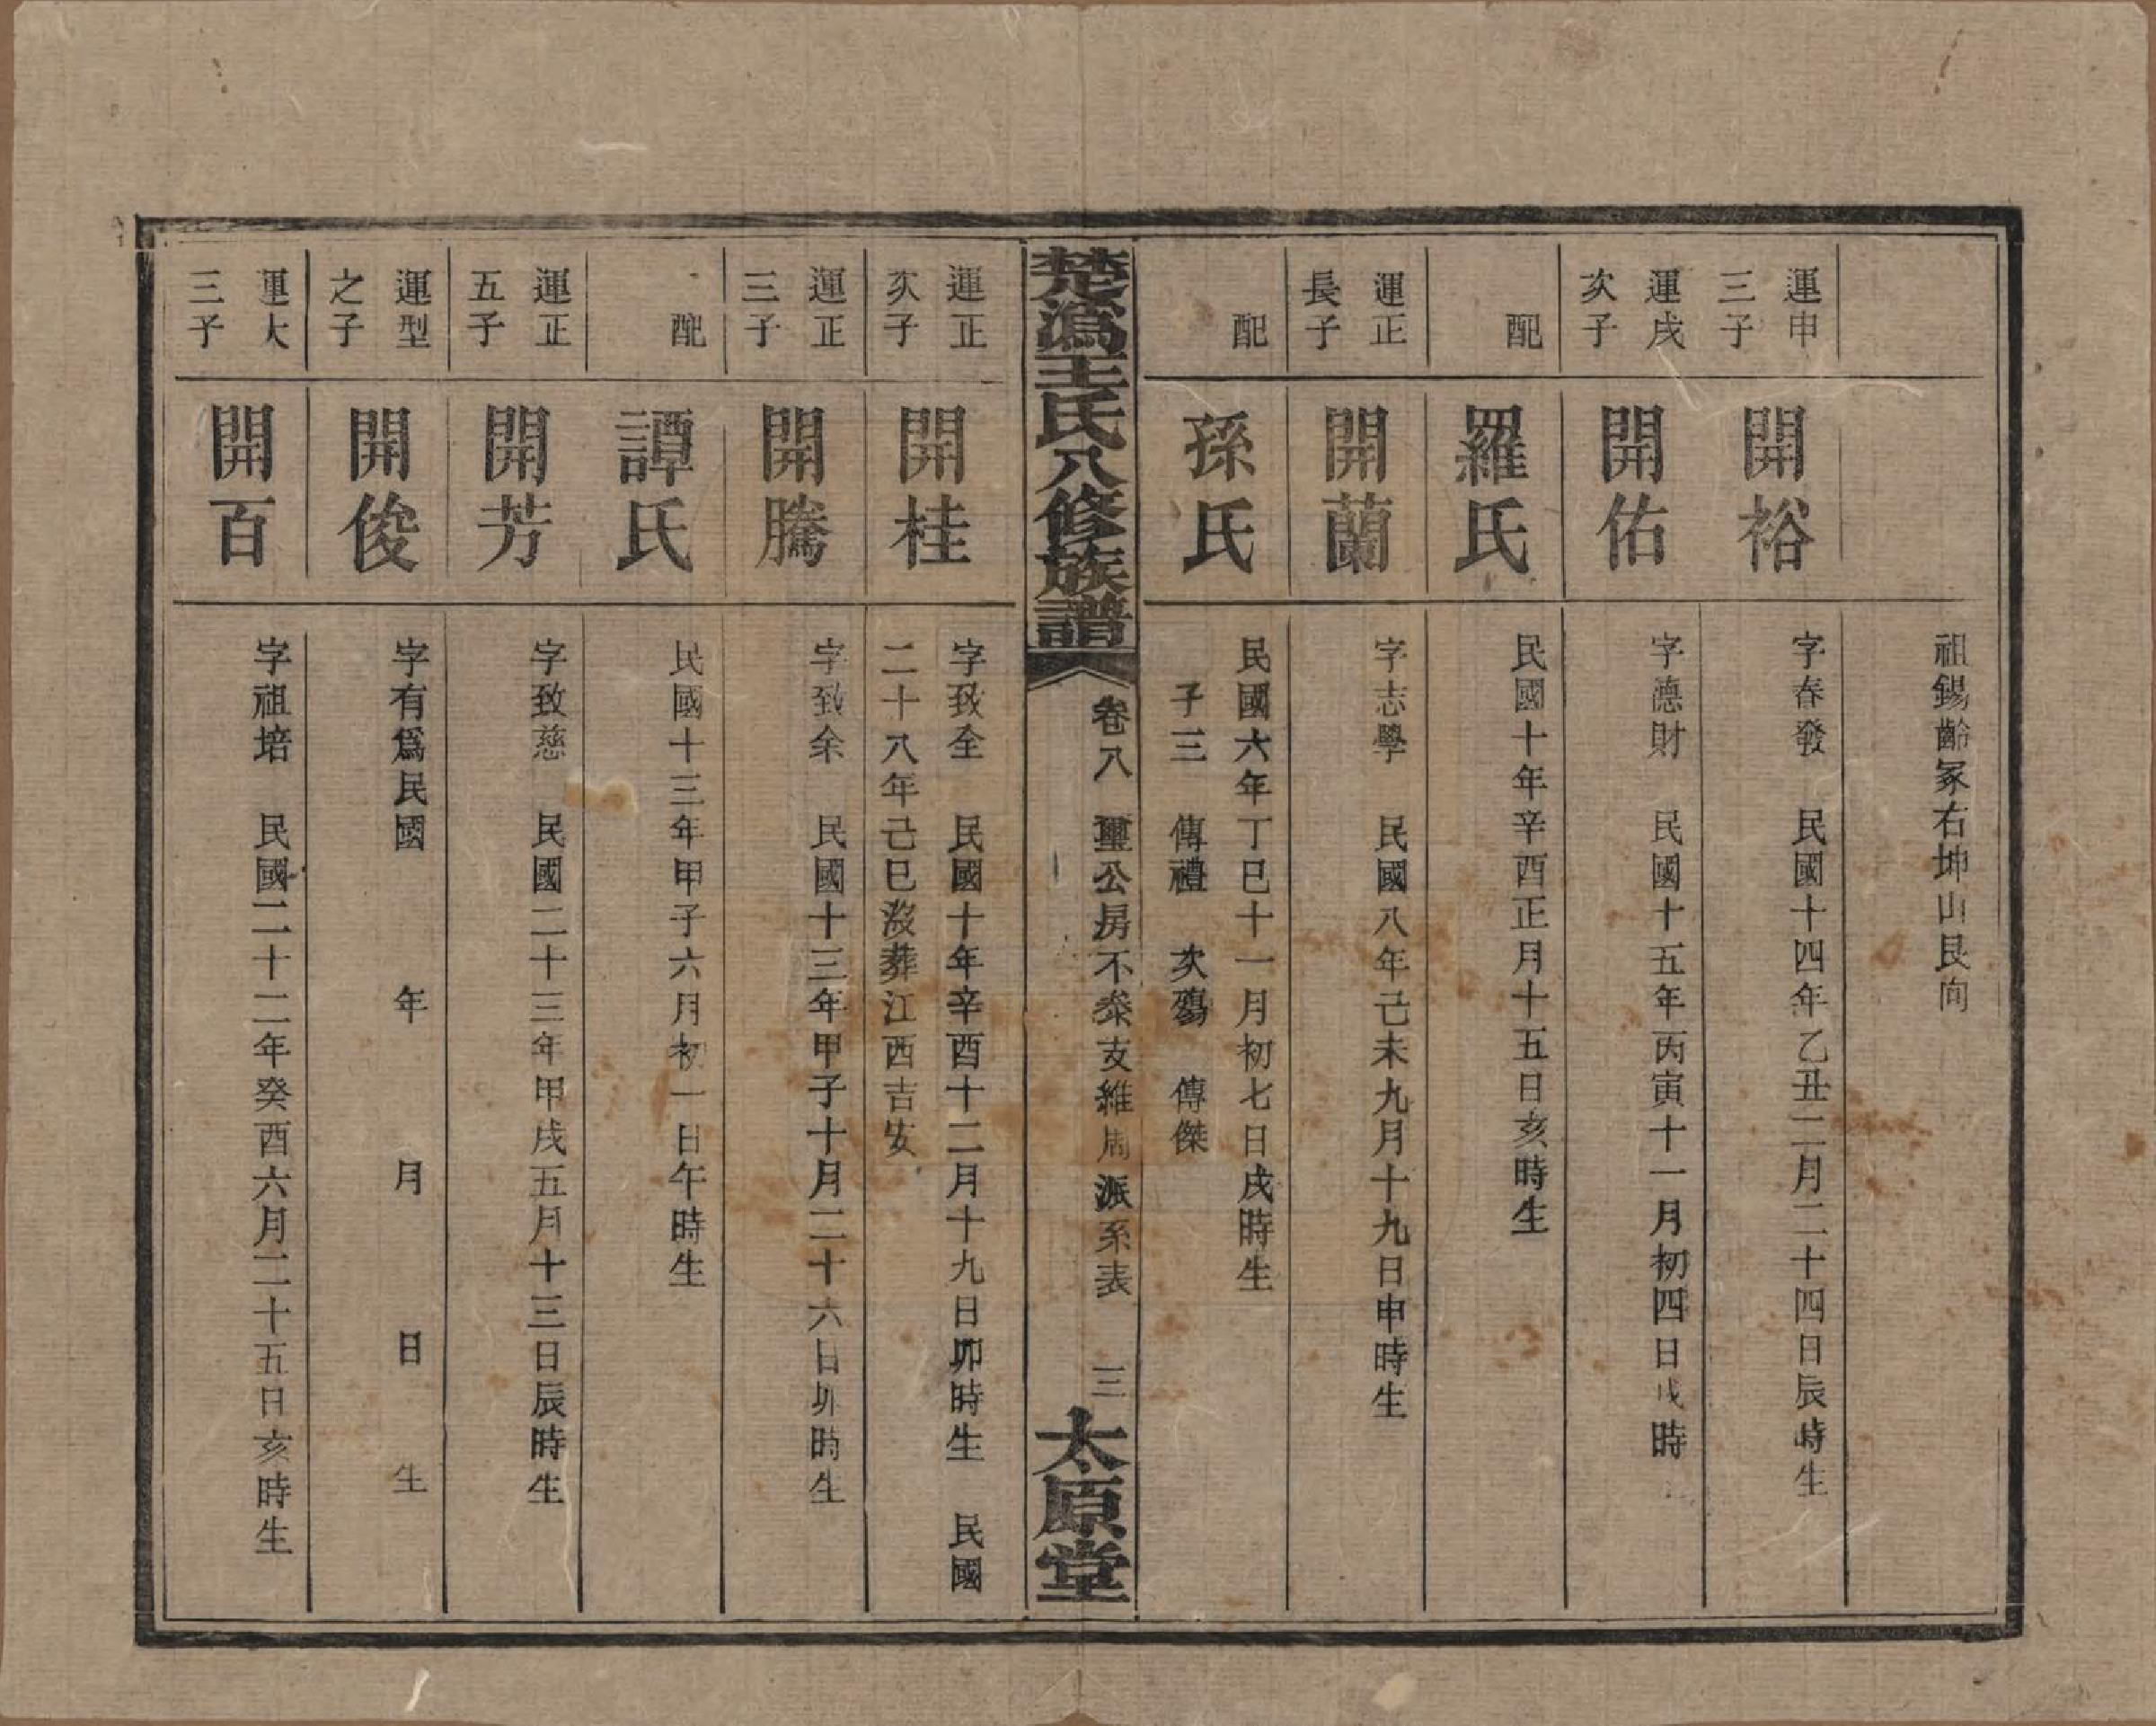 祖錫齡冢右坤山艮向
運申
三子
開裕
字春發　民國十四年乙丑二月二十四日辰時生
運戌
次子
開佑
字德財　民國十五年丙寅十一月初四日戌時
配
羅氏
民國十年辛酉正月十五日亥時生
運正
長子
開蘭
字志學　民國八年己未九月十九日申時生
配
孫氏
民國六年丁巳十一月初七日戌時生
子三　傳禮　次殤　傳傑
楚溈王氏八修族譜
卷八　璽公房不泰支維周派系表　三
太原堂
運正
次子
開桂
字致全　民國十年辛酉十二月十九日卯時生　民國
二十八年己巳歿葬江西吉安
運正
三子
開騰
字致余　民國十三年甲子十月二十六日卯時生
配
譚氏
民國十三年甲子六月初一日午時生
運正
五子
開芳
字致慈　民國二十三年甲戌五月十三日辰時生
運型
之子
開俊
字有爲民國　年　月　日　生
運大
三子
開百
字祖培　民國二十二年癸酉六月二十五日亥時生